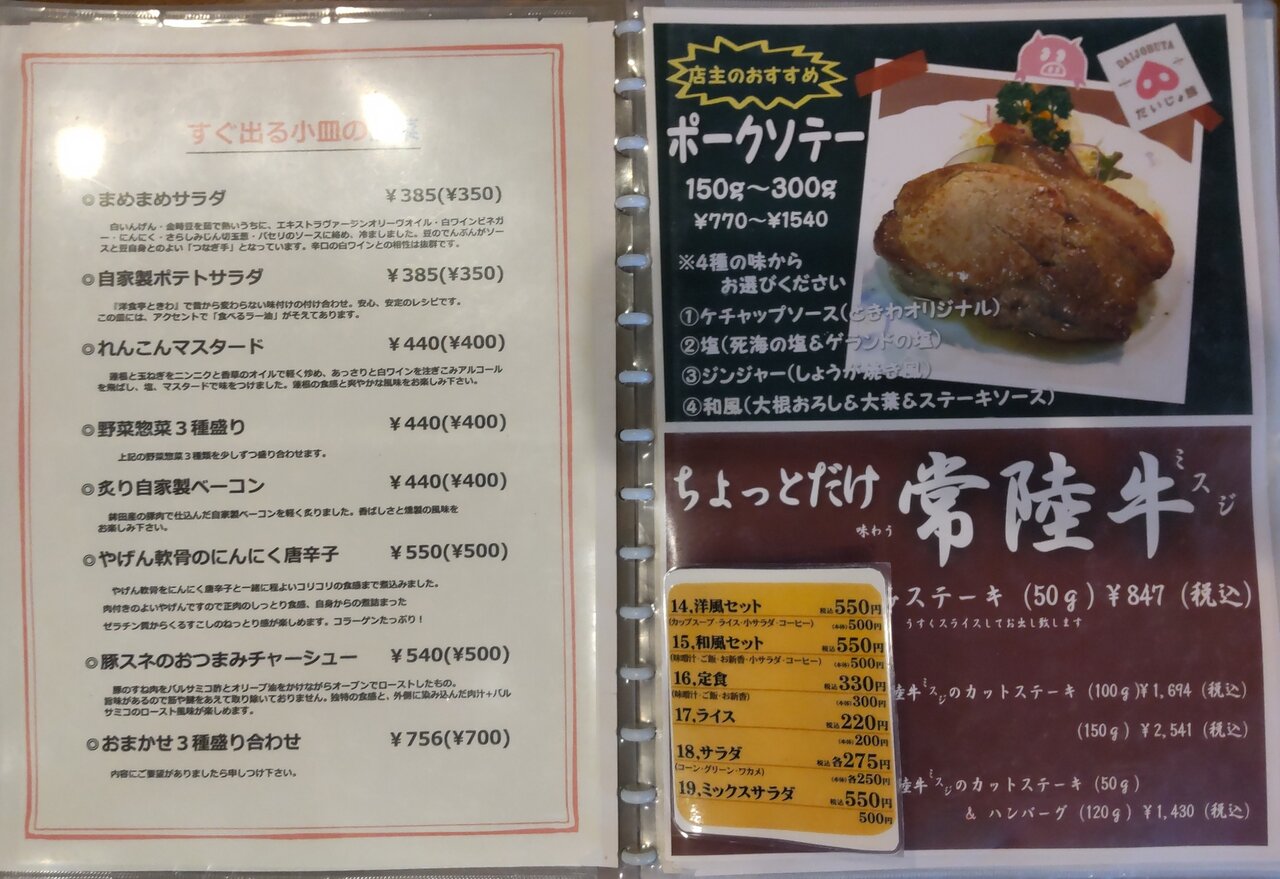 すぐ出る小皿の
◎まめまめサラダ ￥385(¥350)
白いんげん・金時豆を茹で熱いうちに、エキストラヴァージンオリーヴオイル・白ワインビネガ
ー・にんにく・さらしみじん切玉葱・パセリのソースに絡め、冷ましました。豆のでんぷんがソー
スと豆自身とのよい「つなぎ手」となっています。辛口の白ワインとの相性は抜群です。
◎自家製ポテトサラダ ￥385(¥350)
『洋食亭ときわ』で昔から変わらない味付けの付け合わせ。安心、安定のレシピです。
この皿には、アクセントで「食べるラー油」がそえてあります。
◎れんこんマスタード ￥440(¥400)
蓮根と玉ねぎをニンニクと香草のオイルで軽く炒め、あっさりと白ワインを注ぎこみアルコール
を飛ばし、塩、マスタードで味をつけました。蓮根の食感と爽やかな風味をお楽しみ下さい。
◎野菜惣菜３種盛り ￥440(¥400)
上記の野菜惣菜３種類を少しずつ盛り合わせます。
◎炙り自家製ベーコン ￥440(¥400)
鉾田産の豚肉で仕込んだ自家製ベーコンを軽く炙りました。香ばしさと燻製の風味を
お楽しみ下さい。
◎やげん軟骨のにんにく唐辛子 ￥550(¥500)
やげん軟骨をにんにく唐辛子と一緒に程よいコリコリの食感まで煮込みました。
肉付きのよいやげんですので正肉のしっとり食感、自身からの煮詰まった
ゼラチン質からくるすこしのねっとり感が楽しめます。コラーゲンたっぷり！
◎豚スネのおつまみチャーシュー ￥540(¥500)
豚のすね肉をバルサミコ酢とオリーブ油をかけながらオーブンでローストしたもの。
旨味があるので筋や腱をあえて取り除いておりません。独特の食感と、外側に染み込んだ肉汁＋バル
サミコのロースト風味が楽しめます。
◎おまかせ３種盛り合わせ ￥756(¥700)
内容にご要望がありましたら申しつけ下さい。
店主のおすすめ
DAIJOBUTA
だいじょ豚
ポークソテー
150g～300g
¥770～¥1540
※4種の味から
お選びください
①ケチャップソース(ときわオリジナル)
②塩(死海の塩&ゲランドの塩)
③ジンジャー(しょうが焼き風)
④和風(大根おろし&大葉&ステーキソース)
ちょっとだけ
味わう
常陸牛ミスジ
ステーキ (50g) ¥847 (税込)
うすくスライスしてお出し致します
陸牛ミスジのカットステーキ (100g)¥1,694 (税込)
(150g) ¥2,541 (税込)
陸牛ミスジのカットステーキ (50g)
& ハンバーグ (120g) ¥1,430 (税込)
14,洋風セット 税込550円
(カップスープ・ライス・小サラダ・コーヒー) (本体)500円
15,和風セット 税込550円
(味噌汁・ご飯・お新香・小サラダ・コーヒー) (本体)500円
16,定食 税込330円
(味噌汁・ご飯・お新香) (本体)300円
17,ライス 税込220円
(本体)200円
18,サラダ 税込各275円
(コーン・グリーン・ワカメ) (本体)各250円
19,ミックスサラダ 税込550円
500円